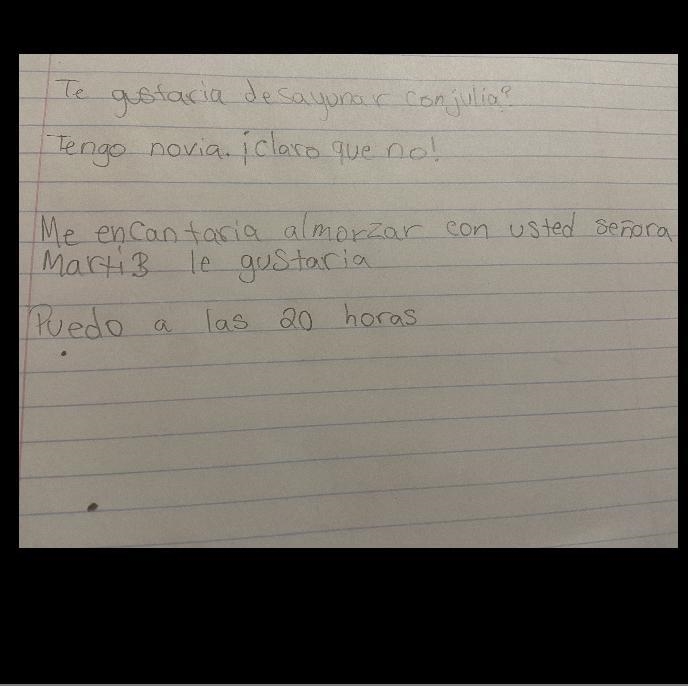 Te gustaria desayunar con julia?
Tengo novia. ¡claro que no!
Me encantaria almorzar con usted señora
Martiz le gustaria
Puedo a las 20 horas